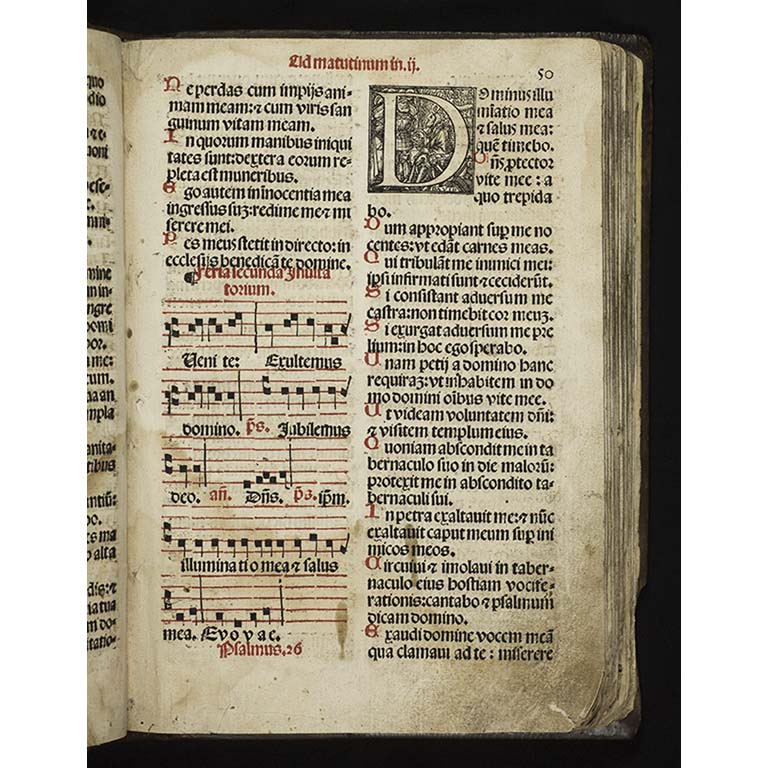 Ad matutinum in.ij.
50
Ne perdas cum impijs ani-
mam meam:⁊ cum viris san
guinum vitam meam.
In quorum manibus iniqui
tates sunt:dextera eorum re-
pleta est muneribus.
Ego autem in innocentia mea
ingressus suʒ:redime me ⁊ mi
serere mei.
Pes meus stetit in directo: in
ecclesijs benedicā te domine.
¶ Feria secunda Inuita
torium.
Ueni te: Exultemus
domino. p̄s. Jubilemus
deo. an̄. Dn̄s. p̄s. ip̄m.
illumina ti o mea ⁊ salus
mea. Evovae.
Psalmus.26
Dominus illu
mīatio mea
⁊ salus mea:
quē timebo.
Dn̄s ꝓtector
vite mee : a
quo trepida
bo.
Dum appropiant suꝑ me no
centes:vt edāt carnes meas.
Qui tribulāt me inimici mei:
ipsi infirmati sunt ⁊ ceciderūt.
Si consistant adversum me
castra:non timebit cor meuʒ.
Si exurgat aduersum me pre
lium:in hoc ego sperabo.
Unam petij a domino hanc
requiraʒ:vt inhabitem in do
mo domini oībus vite mee.
Ut videam voluntatem dn̄i:
⁊ visitem templum eius.
Quoniam abscondit me in ta
bernaculo suo in die malorū:
protexit me in abscondito ta-
bernaculi sui.
In petra exaltauit me:⁊ nūc
exaltauit caput meum suꝑ ini
micos meos.
Circuiui ⁊ imolaui in taber-
naculo eius hostiam vocife-
rationis:cantabo ⁊ psalmum
dicam domino.
Exaudi domine vocem meā
qua clamaui ad te : miserere